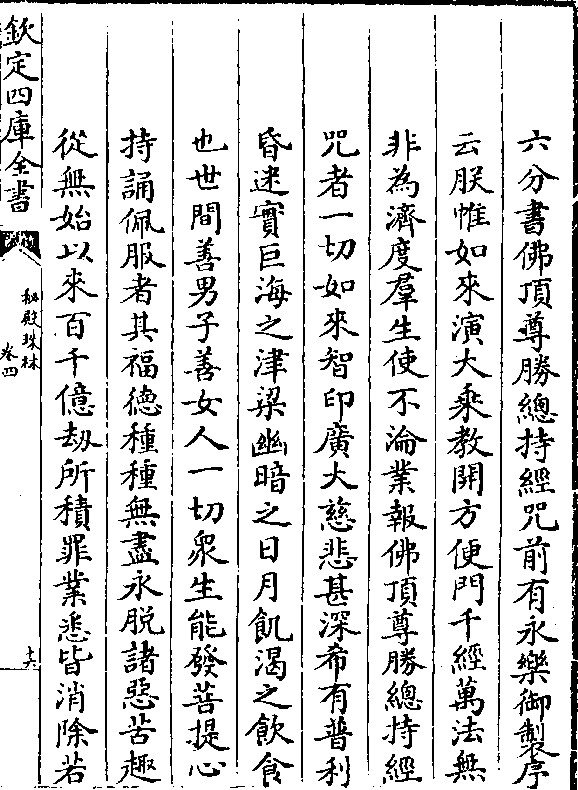 六分書佛頂尊勝總持經咒前有永樂御製序
云朕惟如來演大乘教開方便門千經萬法無
非為濟度羣生使不淪業報佛頂尊勝總持經
咒者一切如來智印廣大慈悲甚深希有普利
昏迷實巨海之津梁幽暗之日月飢渴之飲食
也世間善男子善女人一切衆生能發菩提心
持誦佩服者其福徳種種無盡永脱諸惡苦趣
從無始以來百千億劫所積罪業悉皆消除若
欽定四庫全書
秘殿珠林
卷四
十六